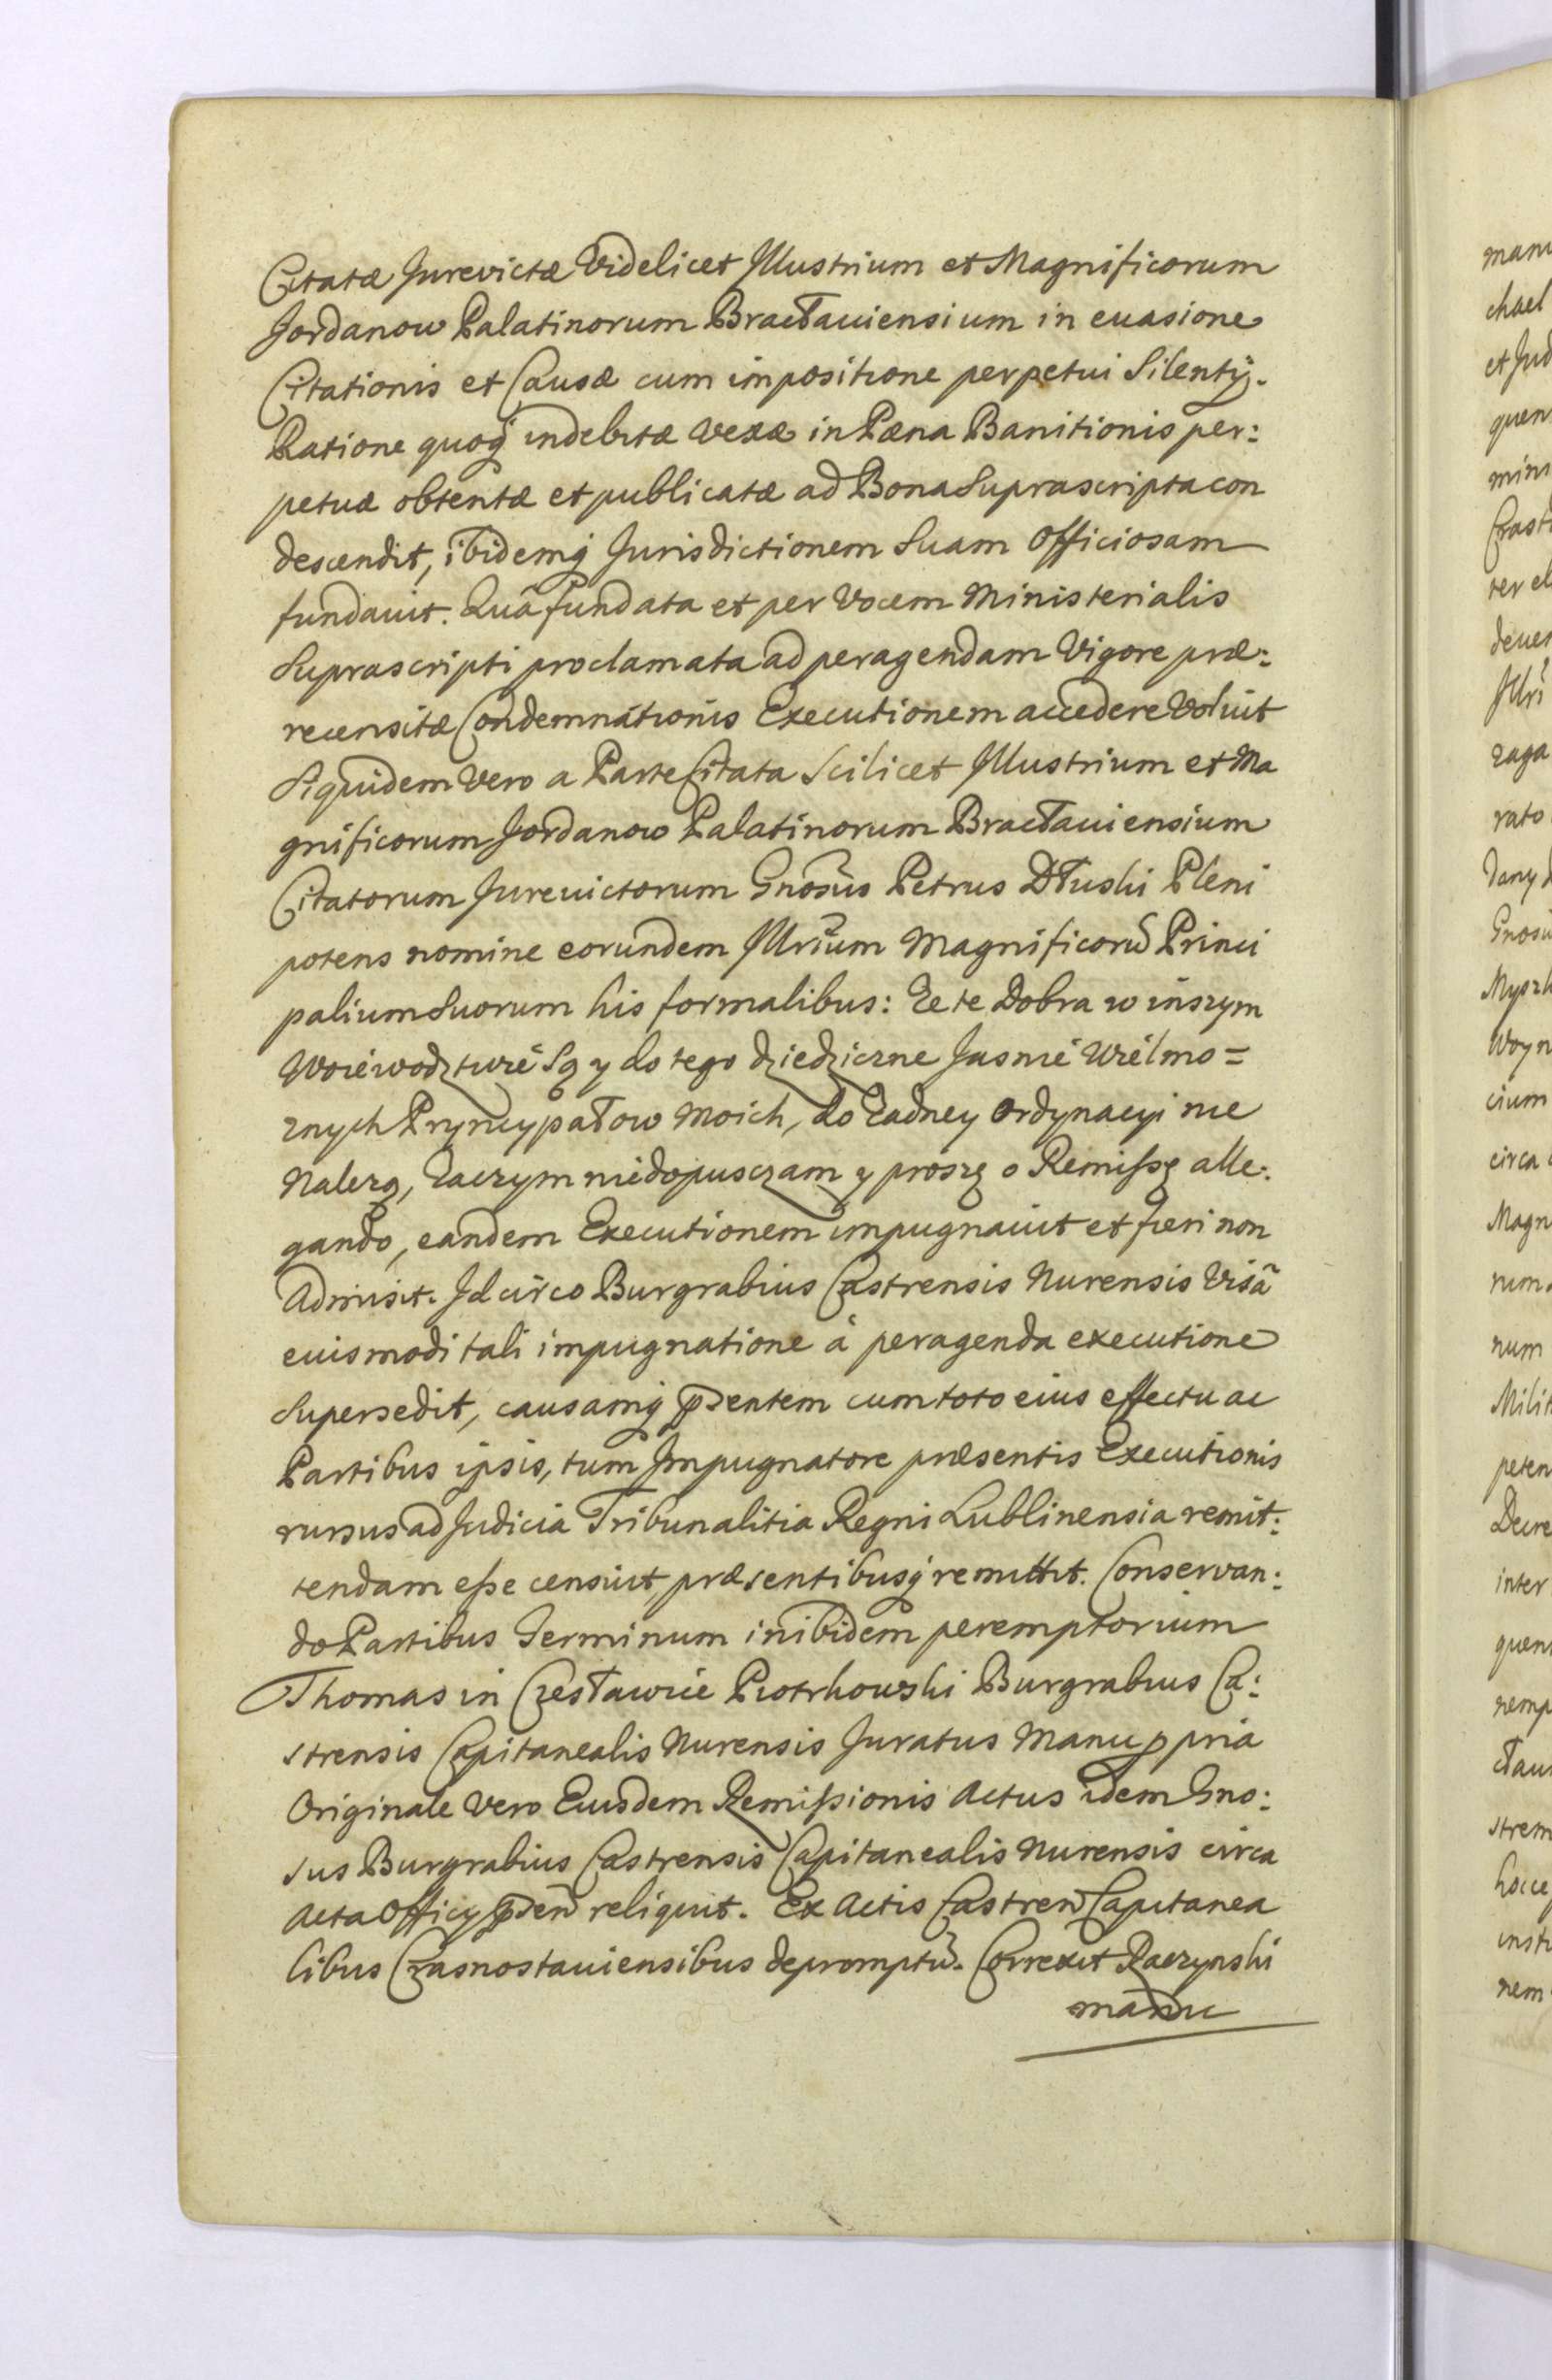 Citatæ Jurevictæ Videlicet Illustrium et Magnificorum
Jordanow Palatinorum Bracłauiensium in euasione
Citationis et Causæ cum impositione perpetui Silentÿ.
Ratione quoqꝫ indebitæ vexæ in Pæna Banitionis per:
petuæ obtentæ et publicatæ ad Bona Suprascripta con
descendit, ibidemqꝫ Jurisdictionem Suam Officiosam
fundauit. Quâ fundata et per Vocem Ministerialis
Suprascripti proclamata ad peragendam Vigore præ:
recensitæ Condemnationis Executionem accedere Voluit
Siquidem Vero a Parte Citata Scilicet Illustrium et Ma
gnificorum Jordanow Palatinorum Bracłauiensium
Citatorum Jureuictorum Gnosus Petrus Dłuski Pleni
potens nomine eorundem Illrium Magnificorū Princi
palium Suorum his formalibus: Ze te Dobra w inszym
Woiewodztwie Są y do tego dziedziczne Jasnie Wielmo=
znych Pryncypałow Moich, do Zadney Ordynacyi nie
Nalezą, Zaczym niedopusczam y proszę o Remiſsę alle:
gando, eandem Executionem impugnauit et fieri non
Admisit. Idcirco Burgrabius Castrensis Nurensis Visâ
euismodi tali impugnatione â peragenda executione
Supersedit, causamqꝫ p̄sentem cum toto eius effectu ac
Partibus ipsis, tum Impugnatore præsentis Executionis
rursus ad Judicia Tribunalitia Regni Lublinensia remit:
tendam eſse censuit, præsentibusqꝫ remittit. Conservan:
do Partibus Terminum inibidem peremptorium
Thomas in Czesławice Piotrkowski Burgrabius Ca:
strensis Capitanealis Nurensis Juratus Manu ppria
Originale Vero Eiusdem Remiſsionis Actus idem Gno:
sus Burgrabius Castrensis Capitanealis Nurensis circa
Acta Officÿ p̄sen̄ reliquit. Ex Actis Castren̄ Capitanea
libus Crasnostauiensibus depromptū. Correxit Raczynski
manu